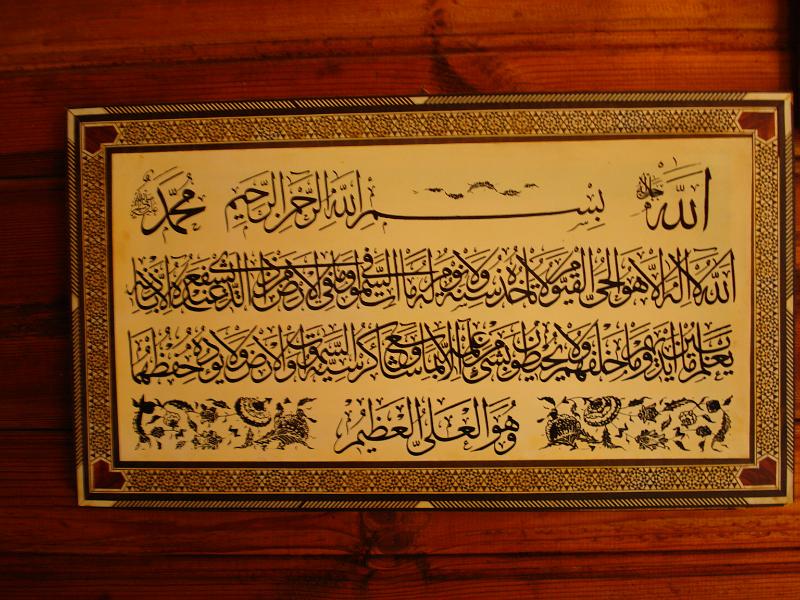 الله جل جلاله بِسْمِ اللهِ الرَّحْمٰنِ الرَّحِيمِ مُحَمَّد
اَللهُ لَا اِلٰهَ اِلَّا هُوَ الْحَيُّ الْقَيُّومُ لَا تَأْخُذُهُ سِنَةٌ وَلَا نَوْمٌ لَهُ مَا فِي السَّمٰوَاتِ وَمَا فِي الْاَرْضِ مَنْ ذَا الَّذِي يَشْفَعُ عِنْدَهُ اِلَّا بِاِذْنِهِ
يَعْلَمُ مَا بَيْنَ اَيْدِيهِمْ وَمَا خَلْفَهُمْ وَلَا يُحِيطُونَ بِشَيْءٍ مِنْ عِلْمِهِ اِلَّا بِمَا شَاءَ وَسِعَ كُرْسِيُّهُ السَّمٰوَاتِ وَالْاَرْضَ وَلَا يَؤُدُهُ حِفْظُهُمَا
وَهُوَ الْعَلِيُّ الْعَظِيمُ